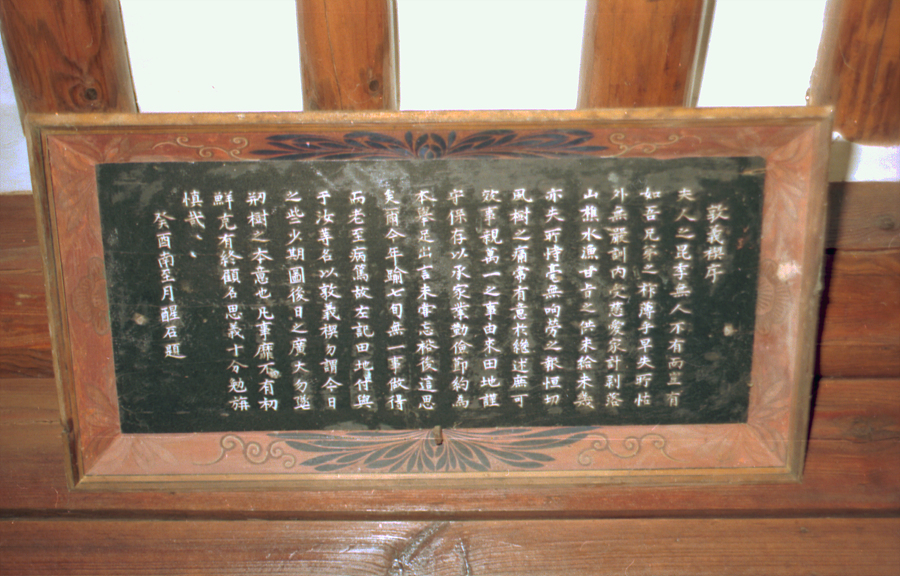 敦義稧序
夫人之昆季無人不有而豈有
如吾兄弟之祚薄乎早失所怙
外無嚴訓內欠慈愛家計剥落
山樵水漁甘旨之供未給未幾
亦失所恃罣無响勞之報恒切
風樹之痛常有意於繼述庶可
效事親萬一之事由來田地謹
守保存以承家業勤儉節約為
本擧足出言未嘗忘於後這思
矣爾今年踰七旬無一事做得
而老至病篤故左記田地付與
于汝等名以敦義稧勿謂今日
之些少期圖後日之廣大勿墜
剏樹之本意也凡事靡不有初
鮮克有終顧名思義十分勉旃
愼哉、、
癸酉南至月醒石題